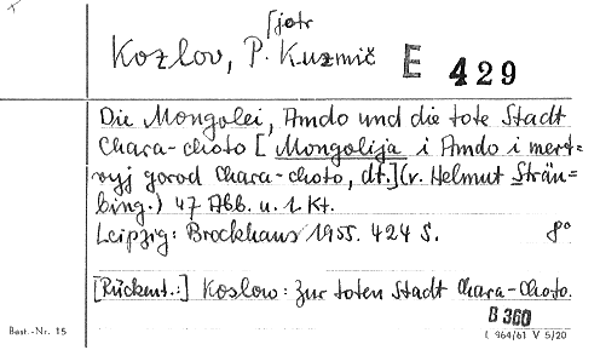 [jotr
Kozlov, P. Kuzmič E 429
Die Mongolei, Amdo und die tote Stadt
Chara-choto [Mongolija i Amdo i mert=
vyj gorod Chara-choto, dt.] (v. Helmut Sträu=
bing.) 47 Abb. u. 1 Kt.
Leipzig: Brockhaus 1955. 424 S. 8°
[Rückent.:] Koslow: Zur toten Stadt Chara-Choto.
B 360
Best.-Nr. 15 L 964/61 V 5/20